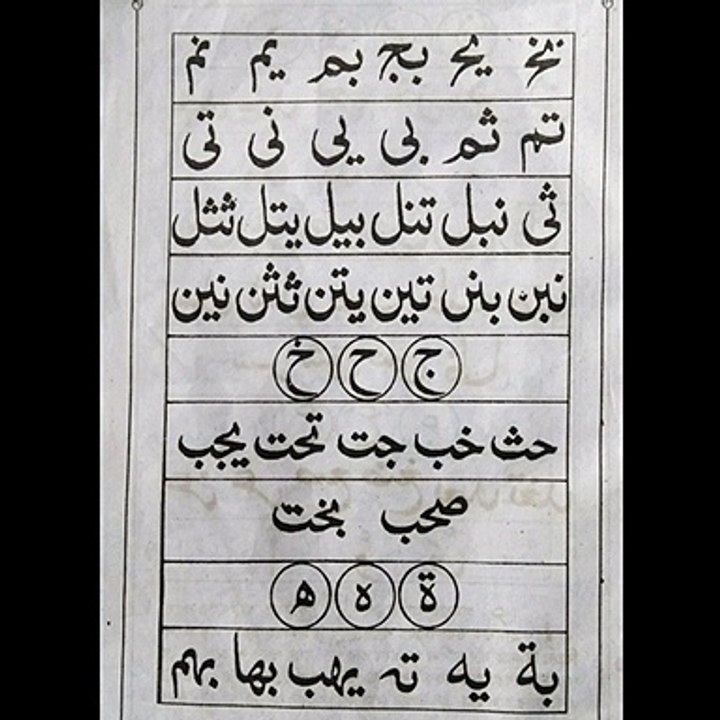 نخ یخ بج بم یم نم
تم ثم بی یی نی تی
ثی نبل تنل بیل یتل ثثل
نبن بنن تین یتن ثثن نین
ج ح خ
حث خب جت تحت یجب
صحب بخت
ة ه ھ
بة یه تہ یهب بها بهم